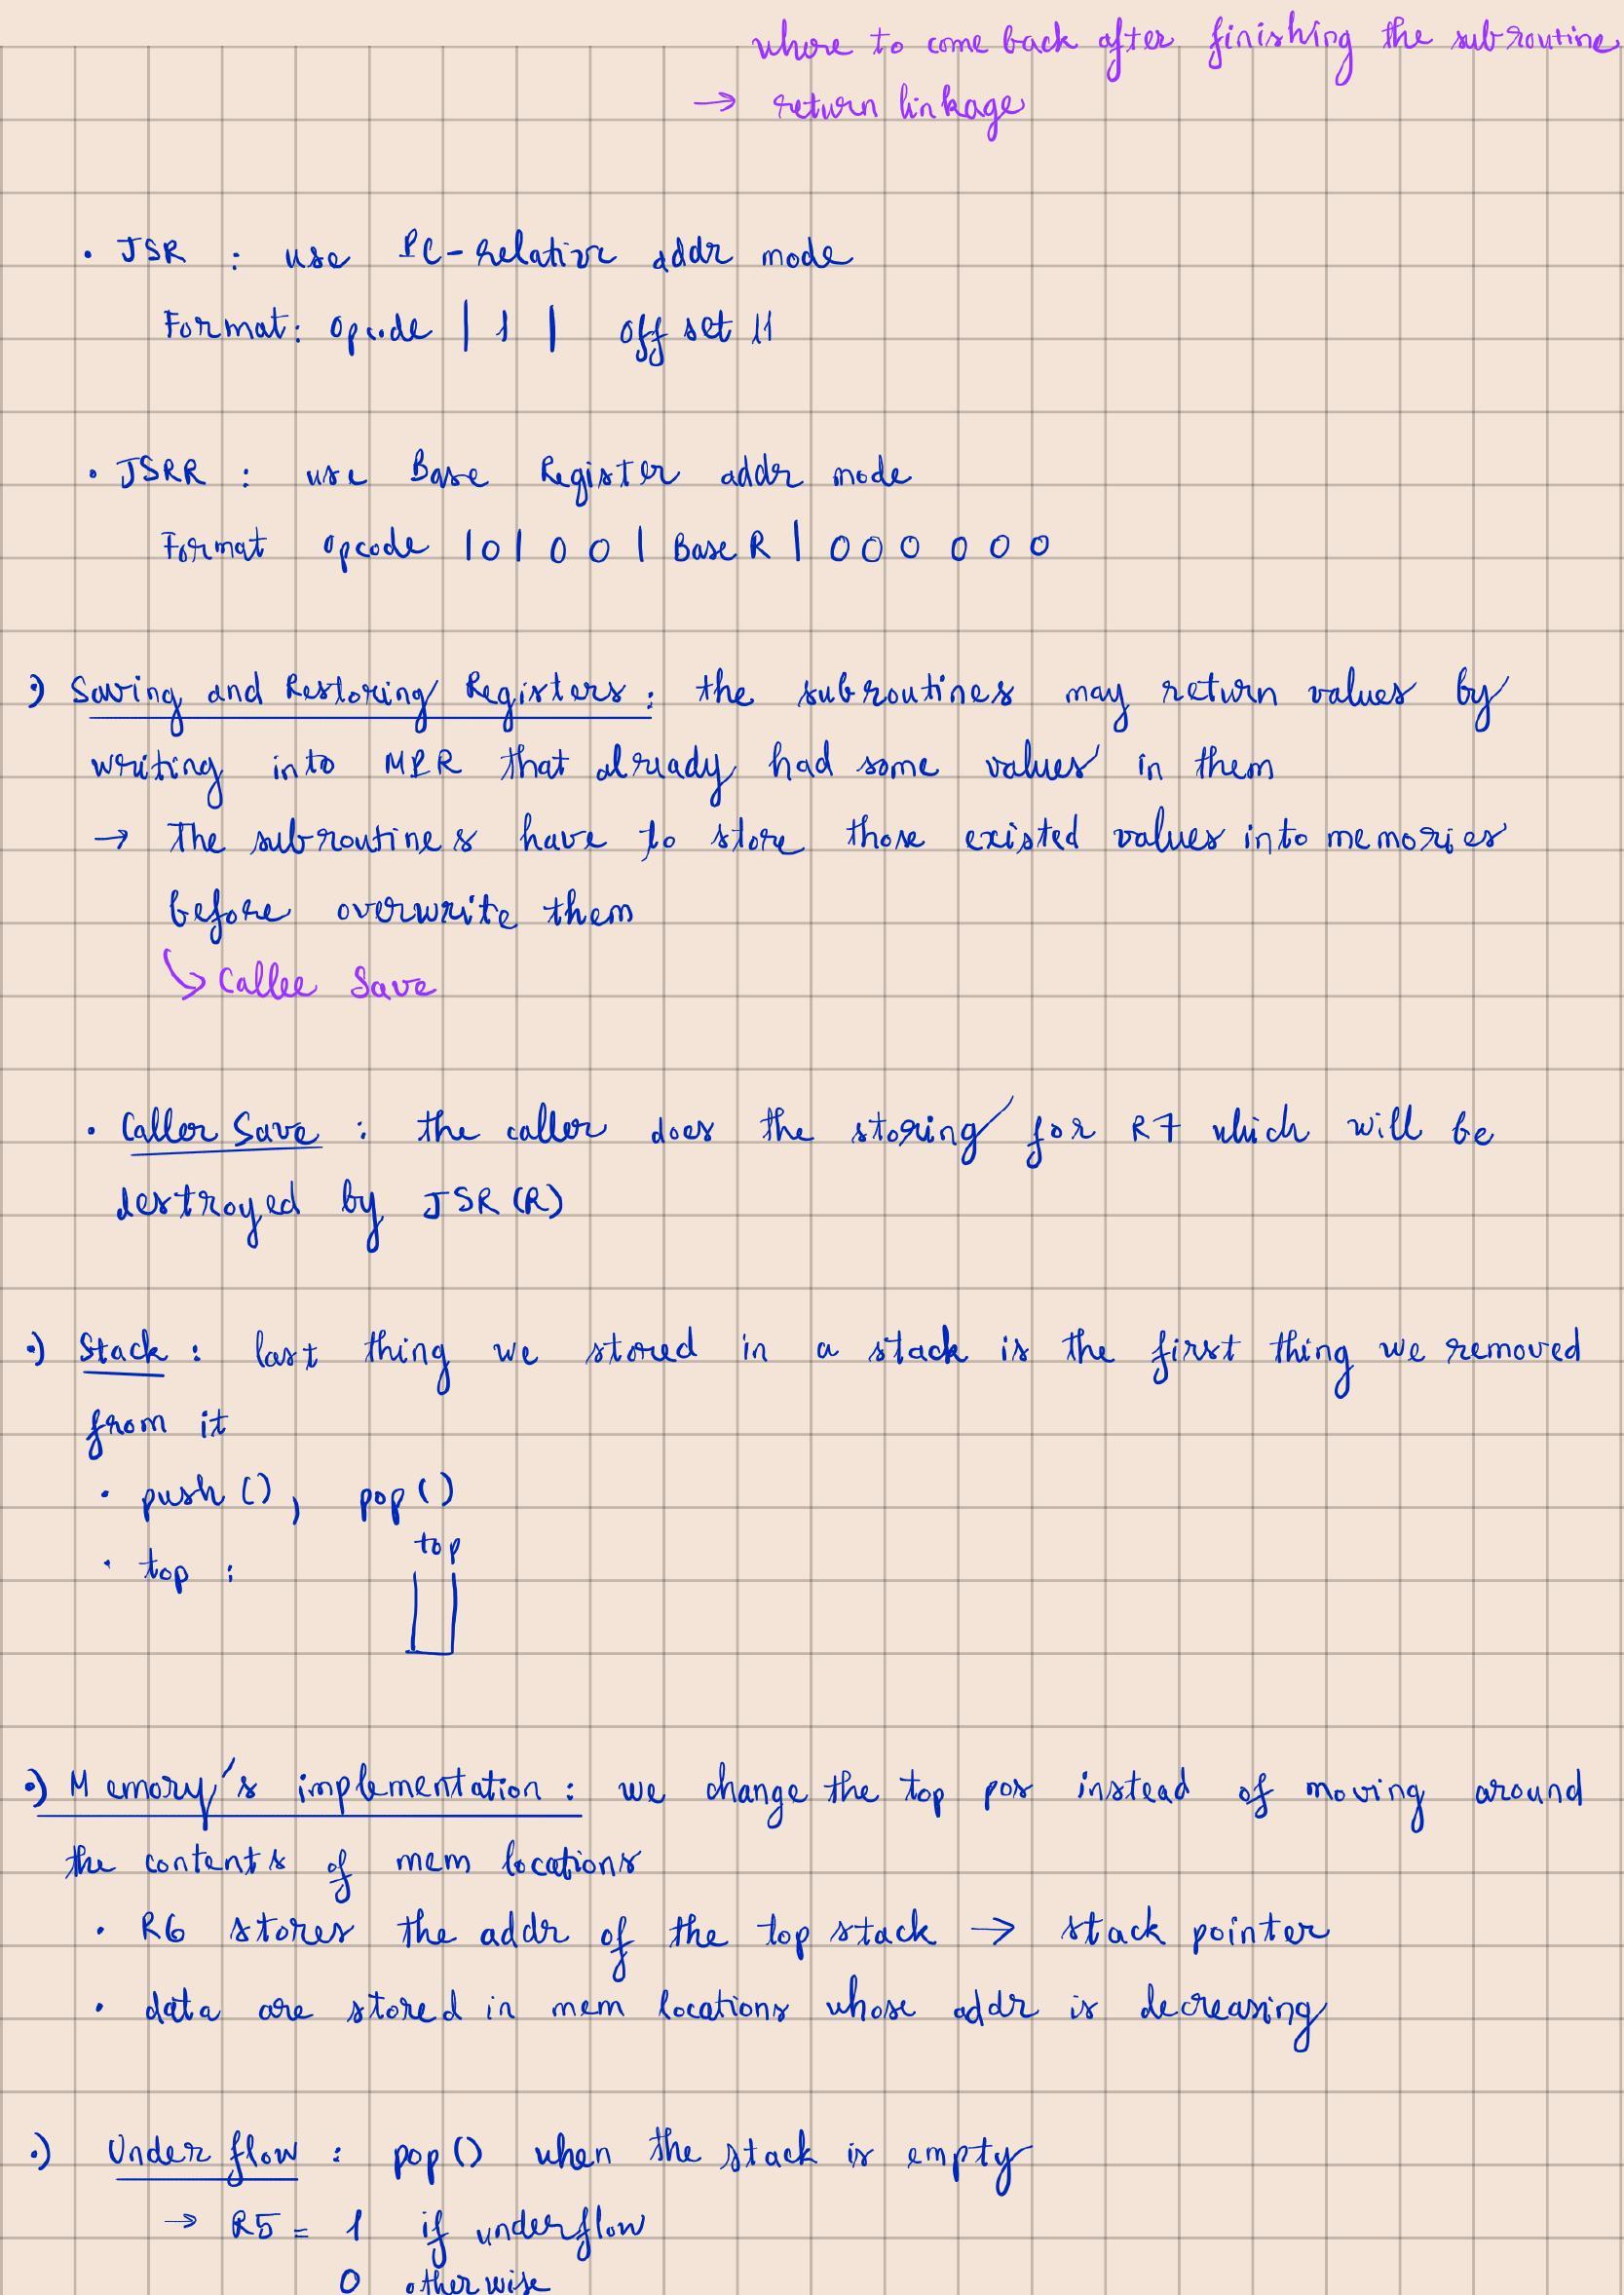 where to come back after finishing the subroutine
→ return linkage
• JSR : use PC-relative addr mode
Format: opcode | 1 | offset 11
• JSRR : use Base Register addr mode
Format opcode | 0 | 0 0 | Base R | 0 0 0 0 0 0
•) Saving and Restoring Registers : the subroutines may return values by
writing into MPR that already had some values in them
→ The subroutines have to store those existed values into memories
before overwrite them
↳ Callee Save
• Caller Save : the caller does the storing for R7 which will be
destroyed by JSR(R)
•) Stack : last thing we stored in a stack is the first thing we removed
from it
• push(), pop()
top
• top :
•) Memory's implementation : we change the top pos instead of moving around
the contents of mem locations
• R6 stores the addr of the top stack → stack pointer
• data are stored in mem locations whose addr is decreasing
•) Underflow : pop() when the stack is empty
→ R5 = 1 if underflow
0 otherwise